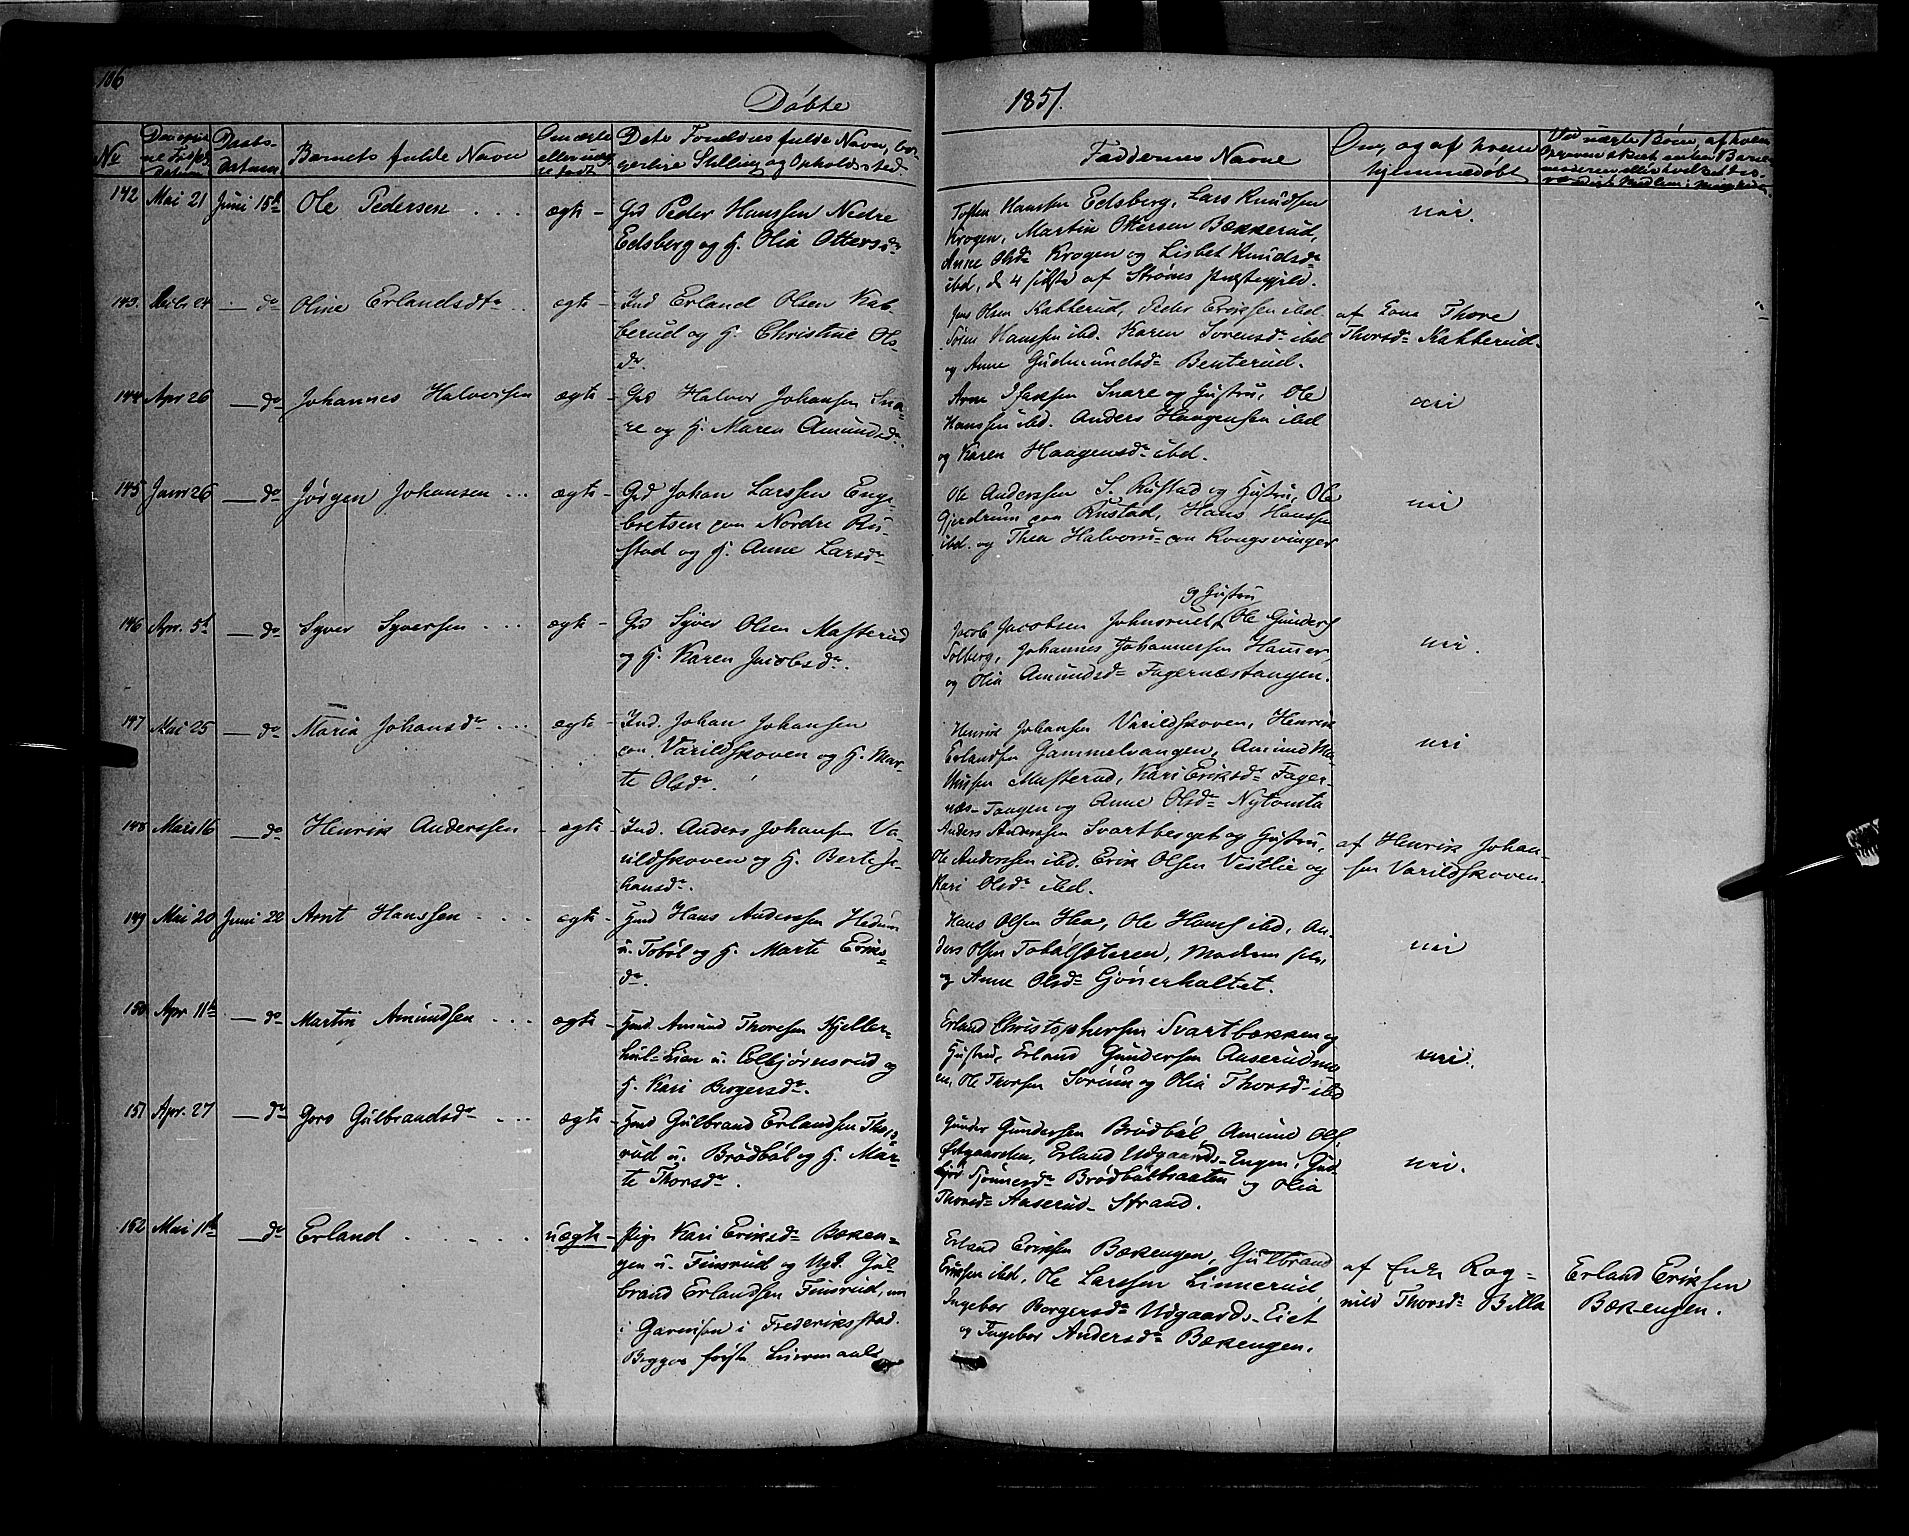 106
Døbte
1851.
No
Barnets fulde Navn
Fadderenes Navne
Om og af hvem
hjemmedøbt
142 Mai 21 Juni 15de Ole Pedersen ægte Grd Peder Hanssen Nedre
Edsberg og H. Olia Ottersdr
Hanssen Edsberg, Lars Knudsen
Krogen, Martin Ottersen Bækkerud,
Anne Olsdr Krogen og Lisbet Knudsdr
ibd, d 4 sidste af Strøms Præstegjeld.
nei.
143 24 do Oline Erlandsdtr ægte Ind Erland Olsen Kab-
berud og H. Christine Ols-
dr
Jens Olsen Kabberud, Peder Eriksen ibd
Søren Hanssen ibd. Karen Sorensdr ibd
og Anne Gudmundsdr Benterud.
af Thore
Thorsdr Kabberud.
144 Apr 26 do Johannes Halvorsen ægte Grd Halvor Johansen Sna-
re og H. Maren Amundsdr.
Arne Snare og Hustru, Ole
Hanssen ibd. Anders Haagensen ibd
og Karen Haagensdr ibd.
nei
145 Janr 26 do Jørgen Johansen ægte Grd Johan Larssen Eng-
bretsen paa Nordre Ru-
stad og H. Anne Larsdr
Ole Anderssen S. Rustad og Hustru, Ole
Gjerdrum paa Rustad, Hans Hanssen
ibd. og Thea Halvors paa Kongsvinger
nei
146 Apr. 5t do Syver Syversen ægte Grd Syver Olsen Masterud
og H. Karen Jacobsdr.
og Hustru
Jacob Jacobsen Johnsrud, Ole Gunders
Solberg, Johannes Johannessen Hamer,
og Olia Amundsdr Fagernæstangen.
nei.
147 Mai 25 do Maria Johansdr ægte Ind. Johan Johansen
paa Varildskoven og H. Mar-
te Olsdr.
Henrik Johansen Varildskoven, Henrik
Erlandsen Gammelvangen, Amund
Masterud, Kari Eriksdr Fager-
næs-Tangen og Anne Olsdr Nytomta
nei
148 Mai 16 do Henrik Anderssen ægte Ind. Anders Johansen Va-
rildskoven og H. Berte Jo-
hansdr.
Anders Anderssen Svartberget og Hustru,
Ole Anderssen ibd. Erik Olsen Vestlie og
Kari Olsdr ibd.
af Henrik Johan-
sen Varildskoven.
149 Mai 20 Juni 22 Arnt Hanssen ægte Hmd Hans Anderssen
u. Tobøl og H. Marte Eriks-
dr.
Hans Olsen Ole Hans ibd, An-
ders Olsen Tobølsæteren, Moderen selv,
og Anne Olsdr Gjønerholtet.
nei
150 Apr 11te do Martin Amundsen ægte Hmd Amund Thoresen Kjeller-
hul-Lien u. Eebjørnsrud og
H. Kari Borgersdr.
Erland Christophersen Svartbækken og
Hustru, Erland Gundersen Aaserudmo-
en, Ole Thorsen Sorum og Olia Thorsdr ibd
nei.
151 Apr. 27 do Goro Gulbrandsdr ægte Hmd Gulbrand Erlandsen Thors-
rud u. Brødbøl og H. Mar-
te Thorsdr.
Gunder Gundersen Brødbøl Amund Ols
Østgaarden, Erland Udgaards-Engen,
Brødbølbraaten og Olia
Thorsdr Aaserud-Strand.
nei.
152 Mai 11te do Erland uægte Pige Kari Eriksdr Bæken-
gen u. Finsrud og Ugk. Gul-
brand Erlandsen Finsrud, nu
i Garnison i Frederiksstad.
Begges første Leiermaal.
Erland Eriksen Bækengen, Gulbrand
Eriksen ibd, Ole Larssen Linnerud,
Ingebor Borgersdr Udgaards-Eiet
og Ingebor Andersdr Bækengen.
af Enke Rag-
nild Thorsdr Billa
Erland Eriksen
Bækengen.